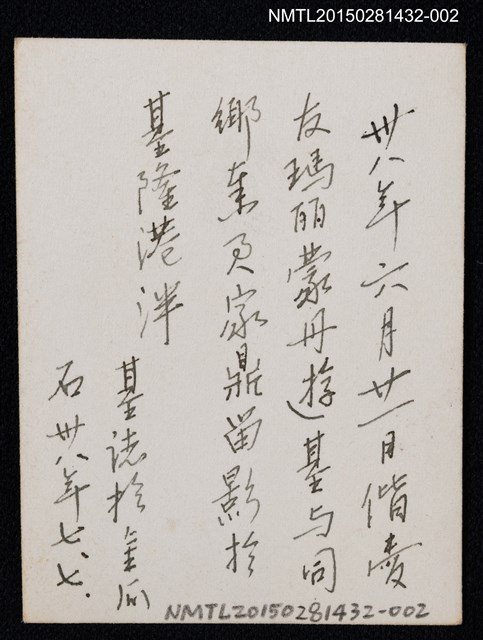 NMTL20150281432-002
卅八年六月廿一日偕
友瑪丽蒙丹遊基与同
鄉 家鼎留影於
基隆港泮
基誌於金瓜
石卅八年七、七.
NMTL20150281432-002